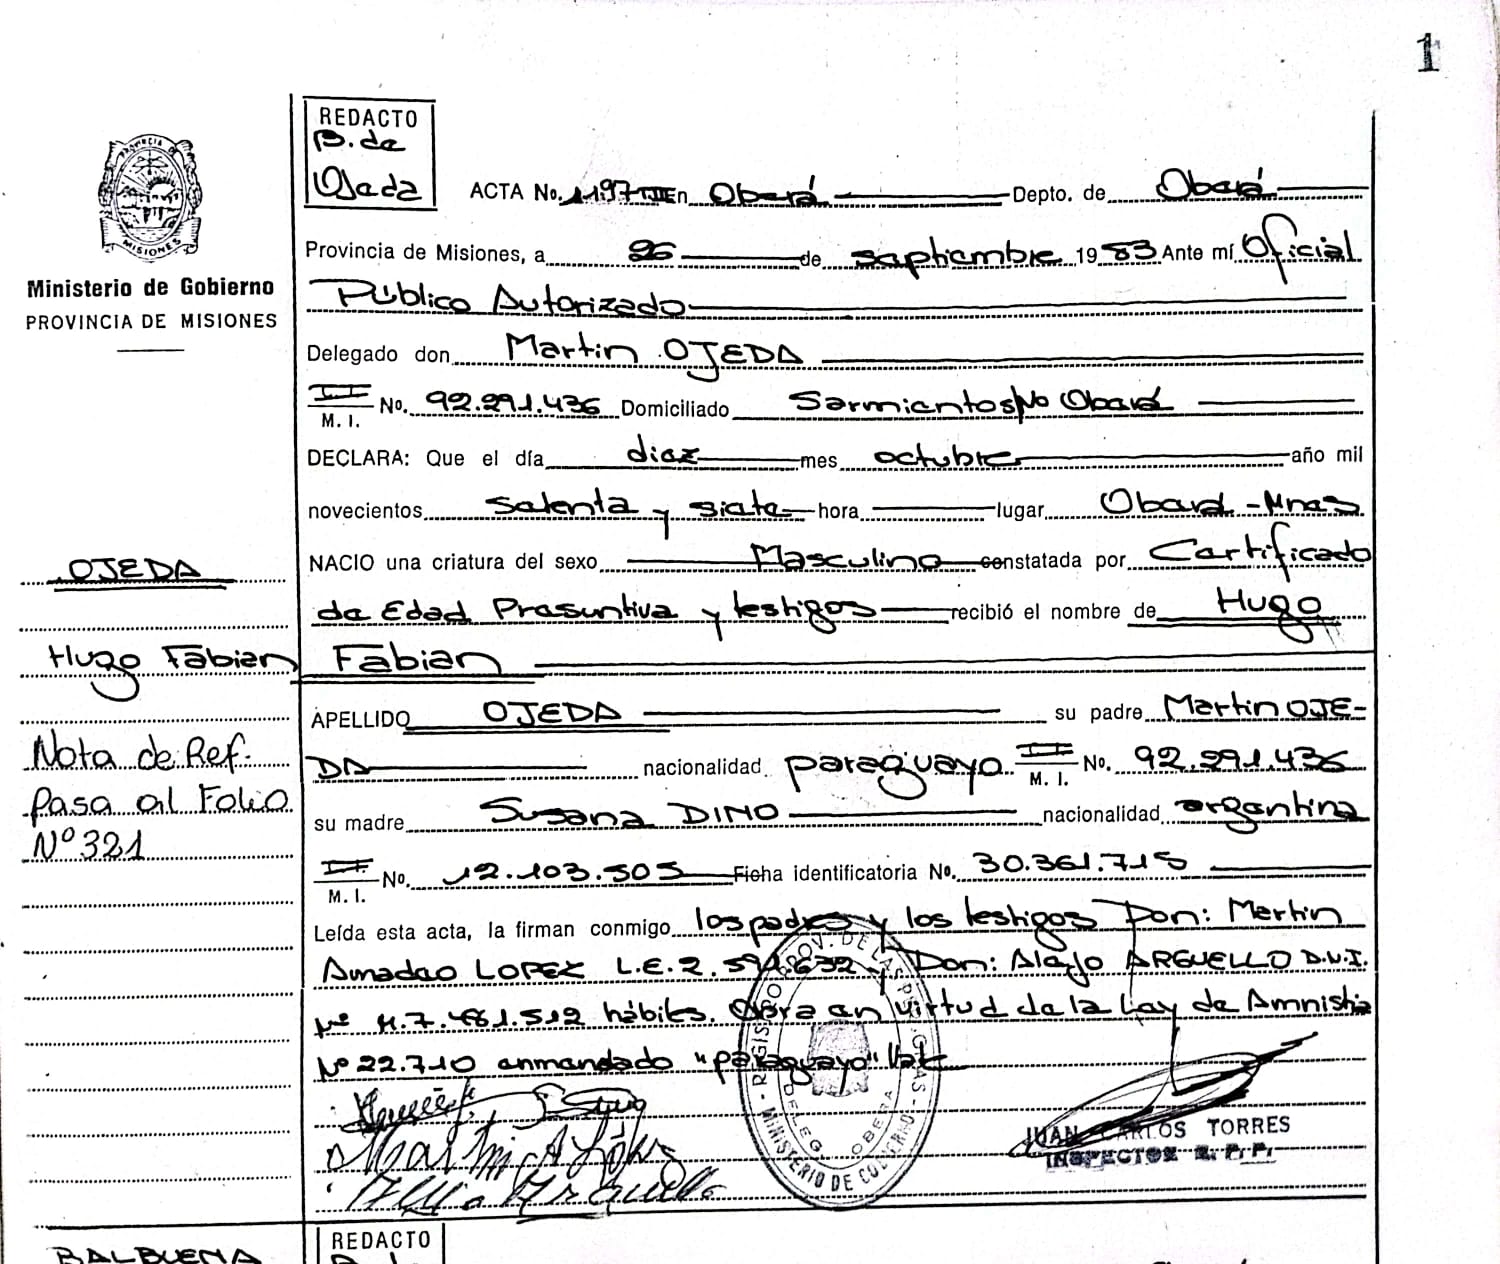 1
REDACTO
B. de
Ojeda
ACTA No. 1197 TIII En Oberá Depto. de Oberá
Provincia de Misiones, a 26 de septiembre 1983 Ante mí Oficial
Público Autorizado
Delegado don Martin OJEDA
M. I. No. 92.291.436 Domiciliado Sarmiento s/No Oberá
DECLARA: Que el día diez mes octubre año mil
novecientos setenta y siete hora lugar Oberá - Mnes
NACIO una criatura del sexo Masculino constatada por Certificado
de Edad Presuntiva y testigos recibió el nombre de Hugo
Fabian
APELLIDO OJEDA su padre Martin OJE-
DA nacionalidad paraguayo M. I. No. 92.291.436
su madre Susana DINO nacionalidad argentina
M. I. No. 12.103.505 Ficha identificatoria No. 30.361.715
Leída esta acta, la firman conmigo los padres y los testigos Don: Martin
Amadeo LOPEZ L.E. 2.591.632 y Don: Alejo ARGUELLO D.N.I.
Nº M.7.481.512 hábiles. Obra en virtud de la Ley de Amnistia
Nº 22.710 enmendado "paraguayo" Vale
JUAN CARLOS TORRES
INSPECTOR R. P. P.
REGISTRO PROV. DE LAS PERSONAS - MINISTERIO DE GOBIERNO -
DELEG. OBERA
PROVINCIA DE
MISIONES
Ministerio de Gobierno
PROVINCIA DE MISIONES
OJEDA
Hugo Fabian
Nota de Ref.
Pasa al Folio
Nº 321
BALBUENA
REDACTO